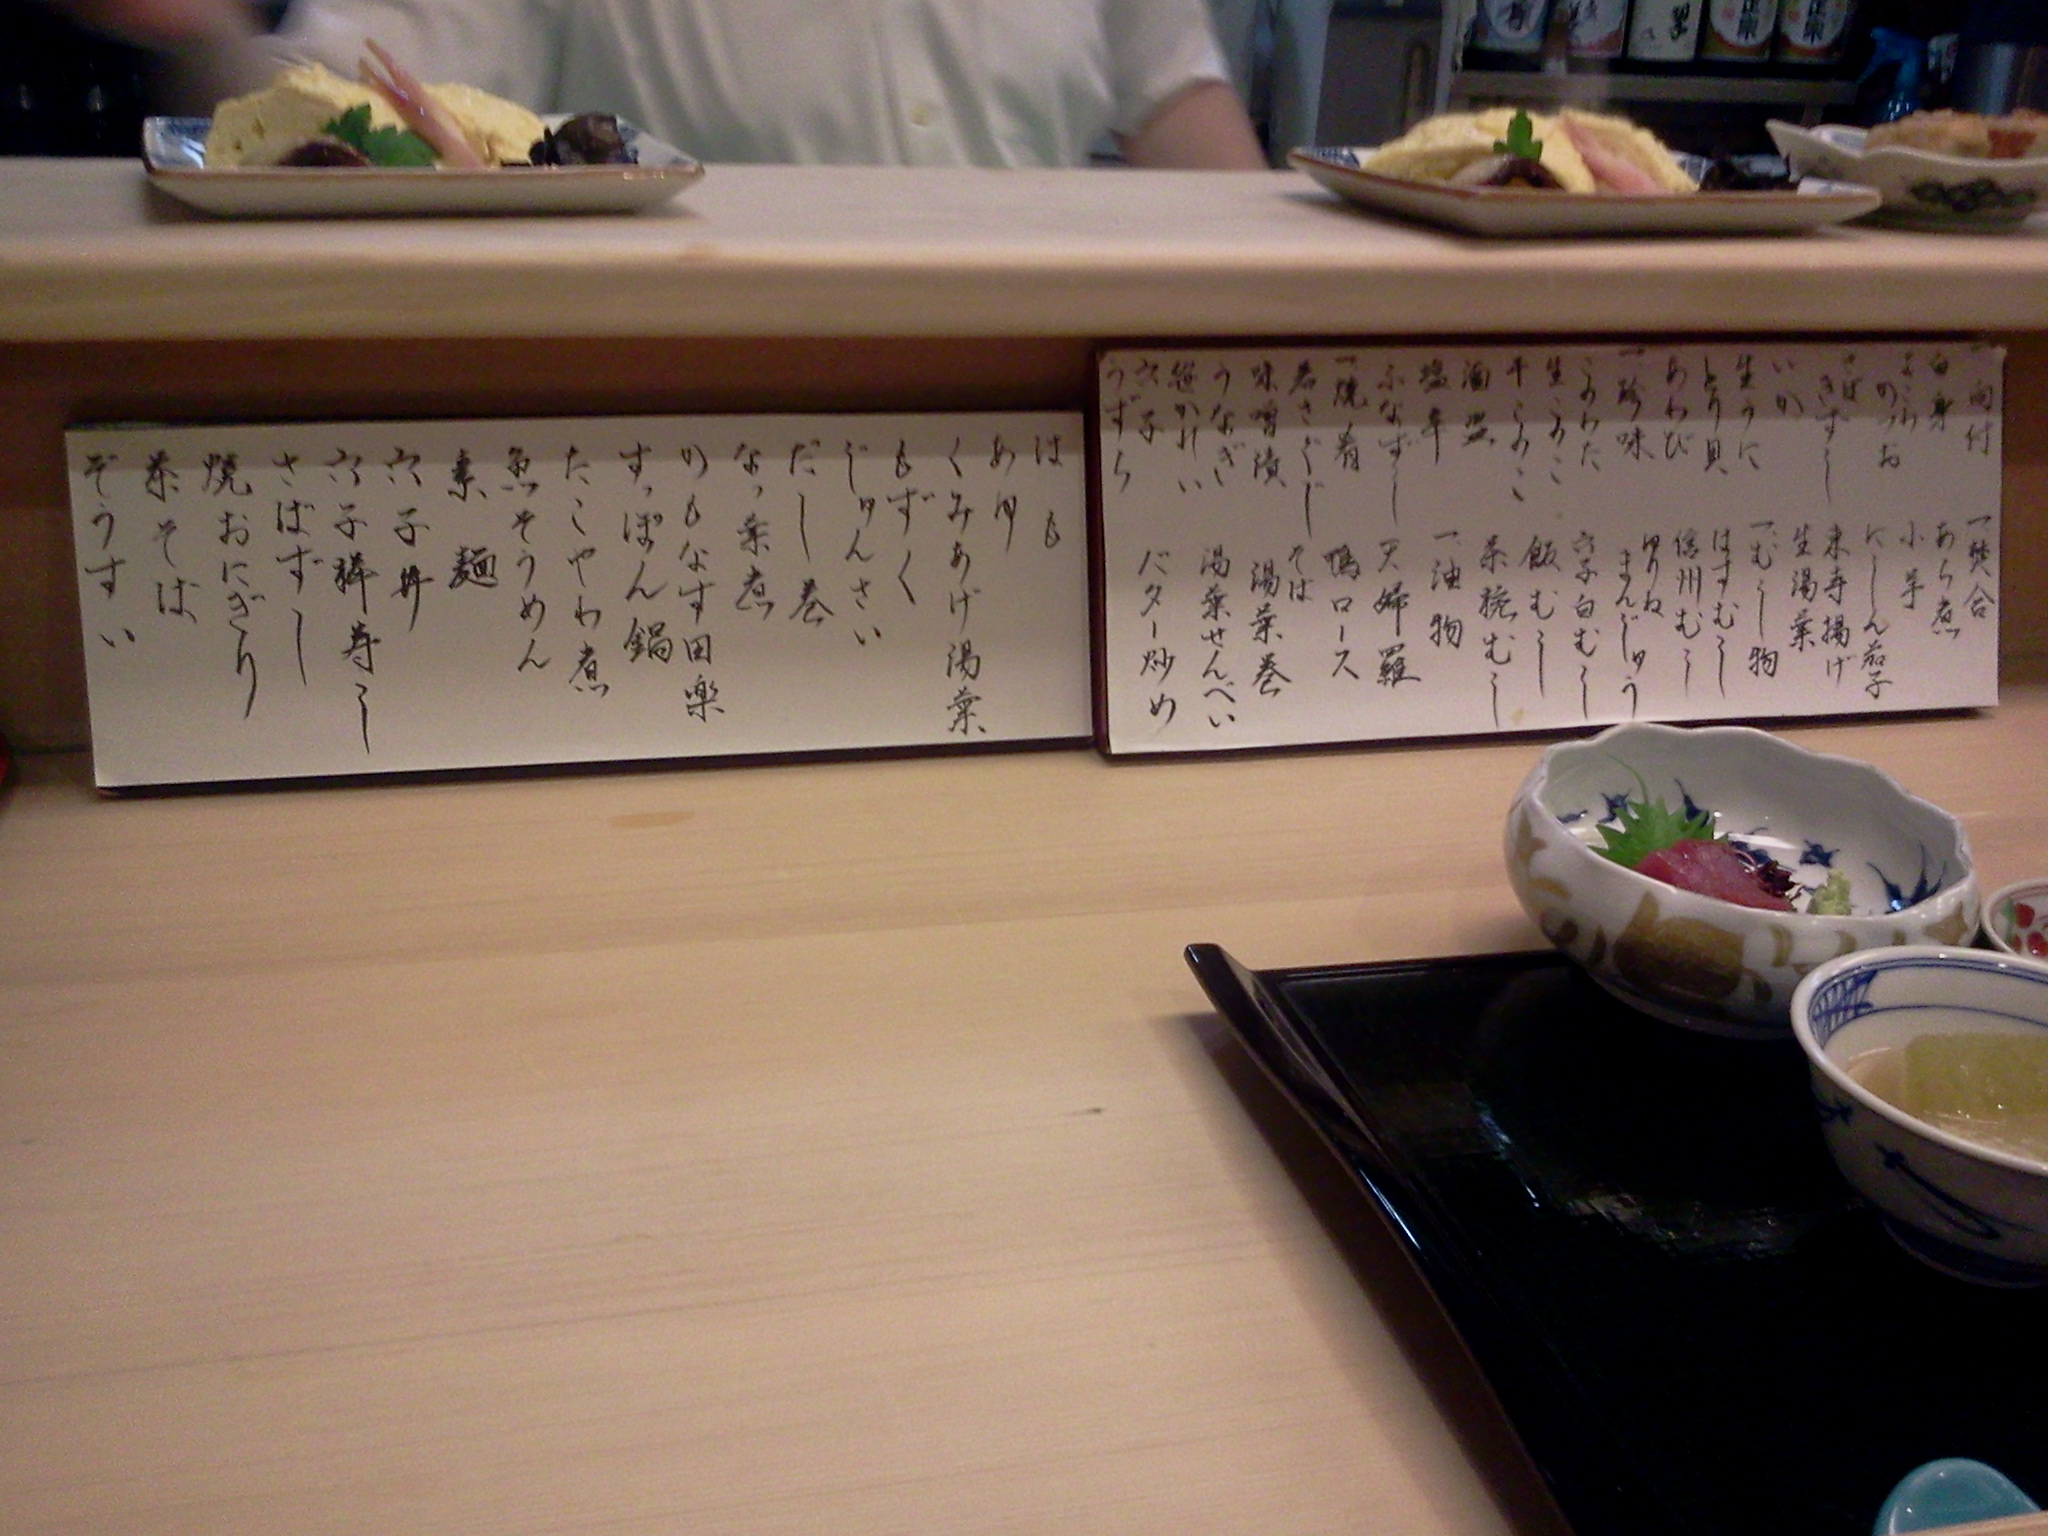 一向付
白身
よこわ
かつお
さば
きずし
いか
生うに
とり貝
あわび
一珍味
このわた
生このこ
干しこのこ
酒盗
塩辛
ふなずし
一焼肴
若さぐじ
味噌漬
うなぎ
笹かれい
穴子
うずら
一焚合
あら煮
小芋
にしん茄子
東寺揚げ
生湯葉
一むし物
はすむし
信州むし
ゆりね
まんじゅう
穴子白むし
飯むし
茶碗むし
一油物
天婦羅
鴨ロース
そば
湯葉巻
湯葉せんべい
バター炒め
はも
あゆ
くみあげ湯葉
もずく
じゅんさい
だし巻
なっ葉煮
かもなす田楽
すっぽん鍋
たこやわ煮
魚そうめん
素麺
穴子丼
穴子棒寿し
さばずし
焼おにぎり
茶そば
ぞうすい
正宗
正宗